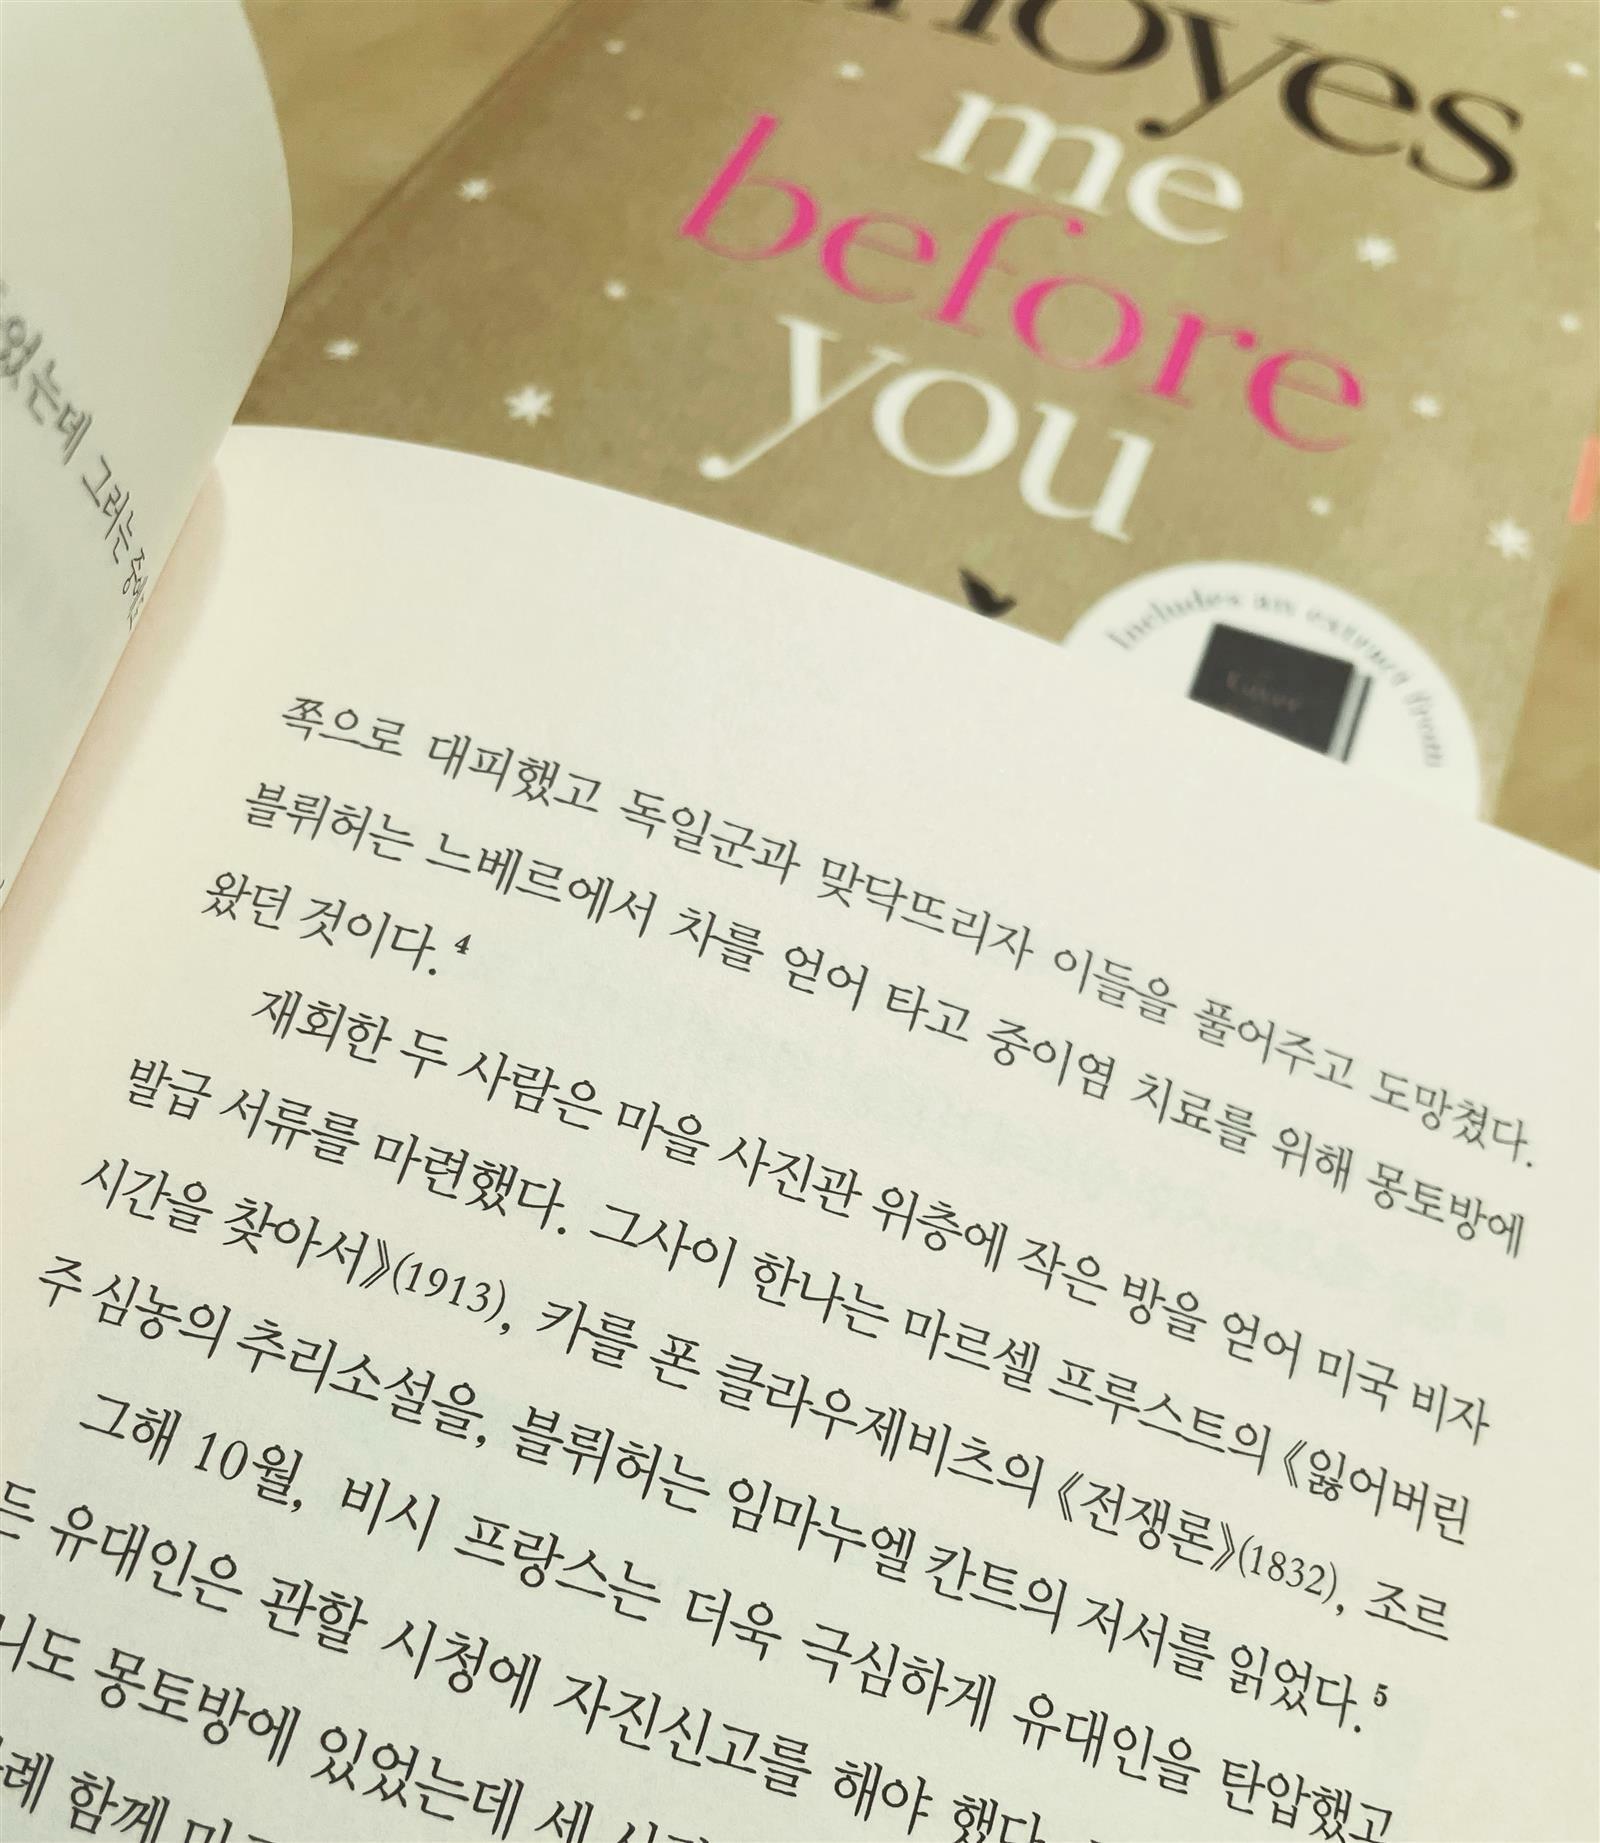 moyes
me
before
you
Includes an extract from
었는데 그러는 중에도
쪽으로 대피했고 독일군과 맞닥뜨리자 이들을 풀어주고 도망쳤다.
블뤼허는 느베르에서 차를 얻어 타고 중이염 치료를 위해 몽토방에
왔던 것이다.4
재회한 두 사람은 마을 사진관 위층에 작은 방을 얻어 미국 비자
발급 서류를 마련했다. 그사이 한나는 마르셀 프루스트의 《잃어버린
시간을 찾아서》(1913), 카를 폰 클라우제비츠의 《전쟁론》(1832), 조르
주 심농의 추리소설을, 블뤼허는 임마누엘 칸트의 저서를 읽었다.5
그해 10월, 비시 프랑스는 더욱 극심하게 유대인을 탄압했고
든 유대인은 관할 시청에 자진신고를 해야 했다.
니도 몽토방에 있었는데 세
례 함께